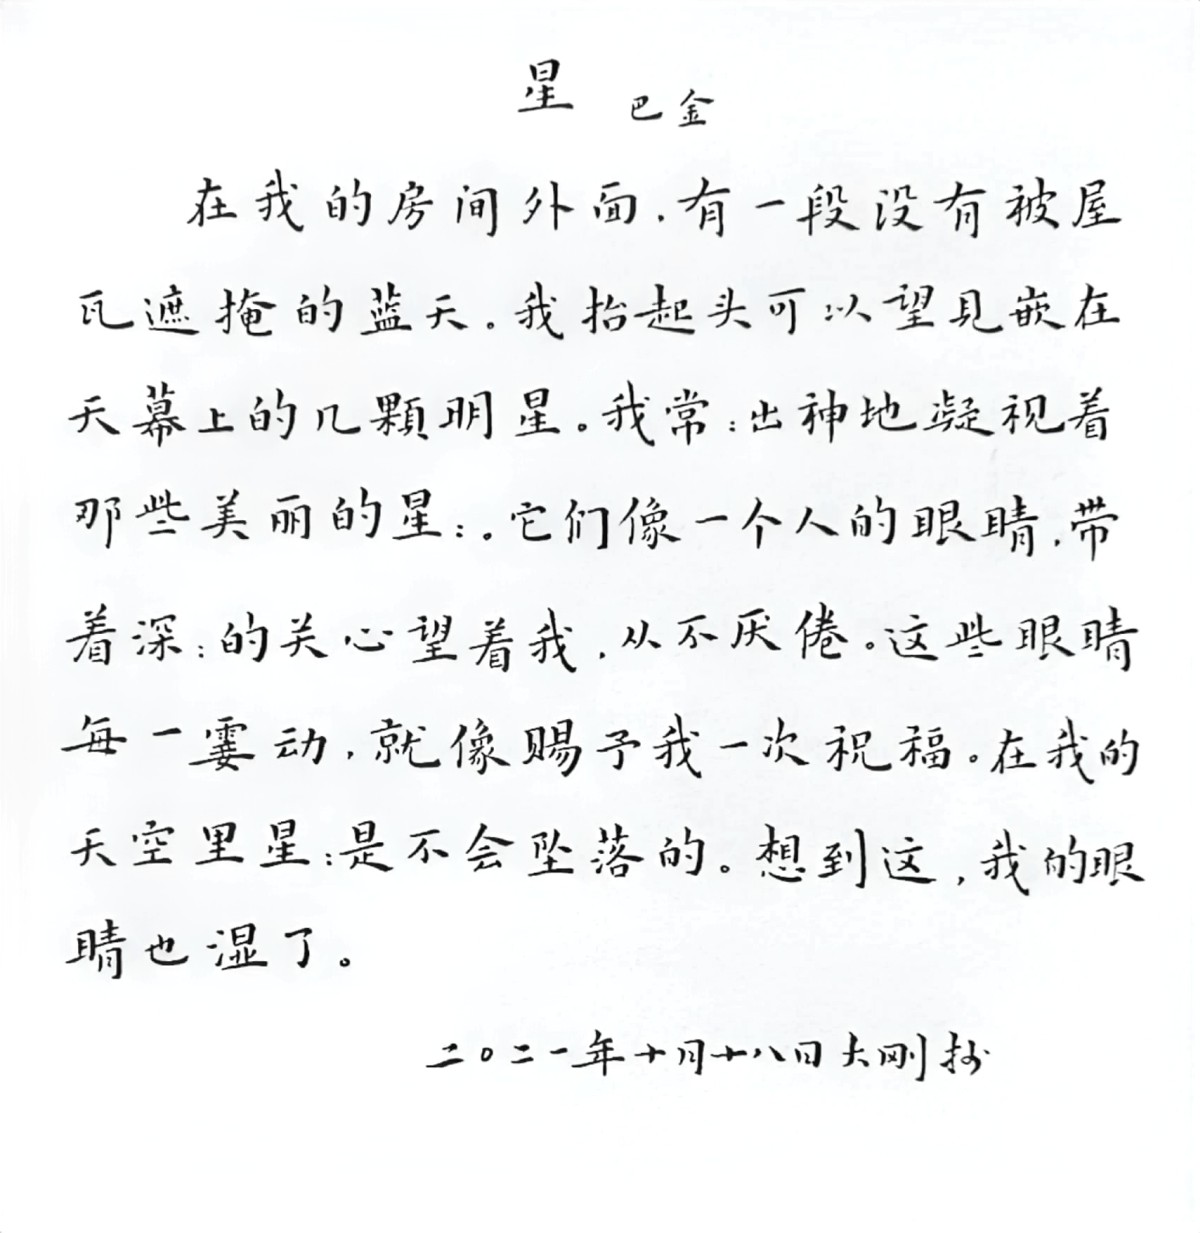 星 巴金
在我的房间外面，有一段没有被屋
瓦遮掩的蓝天。我抬起头可以望见嵌在
天幕上的几颗明星。我常：出神地凝视着
那些美丽的星：。它们像一个人的眼睛，带
着深：的关心望着我，从不厌倦。这些眼睛
每一霎动，就像赐予我一次祝福。在我的
天空里星：是不会坠落的。想到这，我的眼
睛也湿了。
二〇二一年十月十八日大刚抄